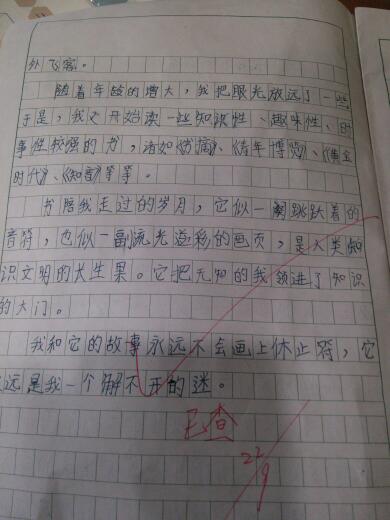 外飞客。
随着年龄的增大，我把眼光放远了一些
于是，我又开始读一些知识性、趣味性、时
事性较强的书，诸如《书摘》、《青年博览》、《黄金
时代》、《知音》等等。
书陪我走过的岁月，它似一跳跃着的
音符，也似一副流光逸彩的画页，是人类知
识文明的长生果。它把无知的我领进了知识
的大门。
我和它的故事永远不会画上休止符，它
永远是我一个解不开的迷。
已查
22/9